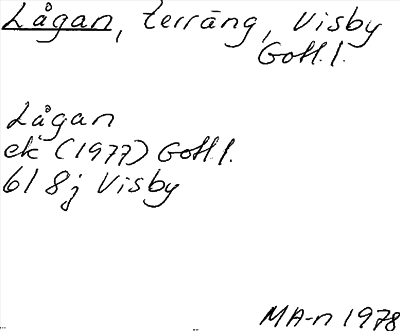 Lågan, terräng, Visby
Gotl.l.
Lågan
ek (1977) Gotl.l.
6I 8j Visby
MA-n 1978